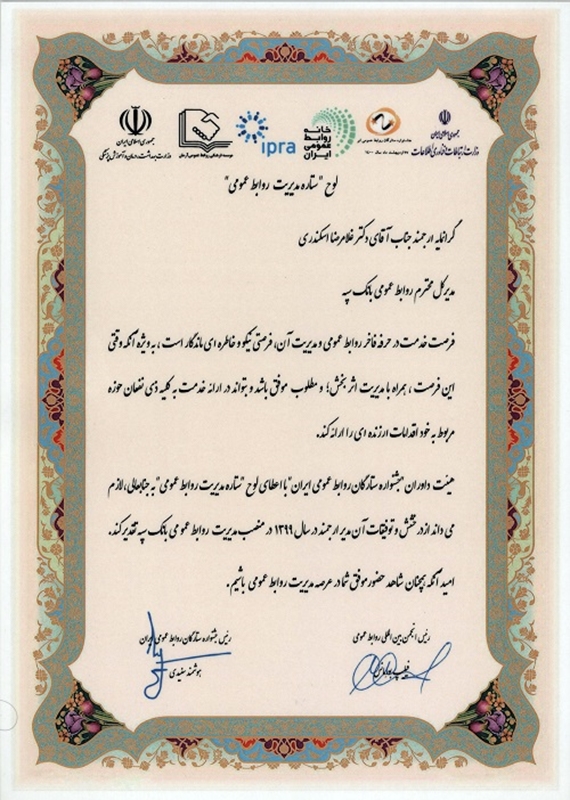 جمهوری اسلامی ایران
وزارت ارتباطات و فناوری اطلاعات
جشنواره ستارگان روابط عمومی ایران
خانه
روابط
عمومی
ایران
ipra
جمهوری اسلامی ایران
وزارت بهداشت، درمان و آموزش پزشکی
لوح "ستاره مدیریت روابط عمومی"
گرانمایه ارجمند جناب آقای دکتر غلامرضا اسکندری
مدیرکل محترم روابط عمومی بانک سپه
فرصت خدمت در حرفه فاخر روابط عمومی و مدیریت آن، فرصتی نیکو و خاطره ای ماندگار است، به ویژه آنکه وقتی
این فرصت، همراه با مدیریت اثر بخش؛ و مطلوب موفق باشد و بتواند در ارائه خدمت به کلیه ذی نفعان حوزه
مربوط به خود اقدامات ارزنده ای را ارائه کند.
هیئت داوران "جشنواره ستارگان روابط عمومی ایران" با اعطای لوح "ستاره مدیریت روابط عمومی" به جنابعالی، لازم
می داند از درخشش و توفیقات آن مدیر ارجمند در سال ۱۳۹۹ در منصب مدیریت روابط عمومی بانک سپه تقدیر کند.
امید آنکه همچنان شاهد حضور موفق شما در عرصه مدیریت روابط عمومی باشیم.
رئیس انجمن بین المللی روابط عمومی
رئیس جشنواره ستارگان روابط عمومی ایران
هوشمند سفیدی